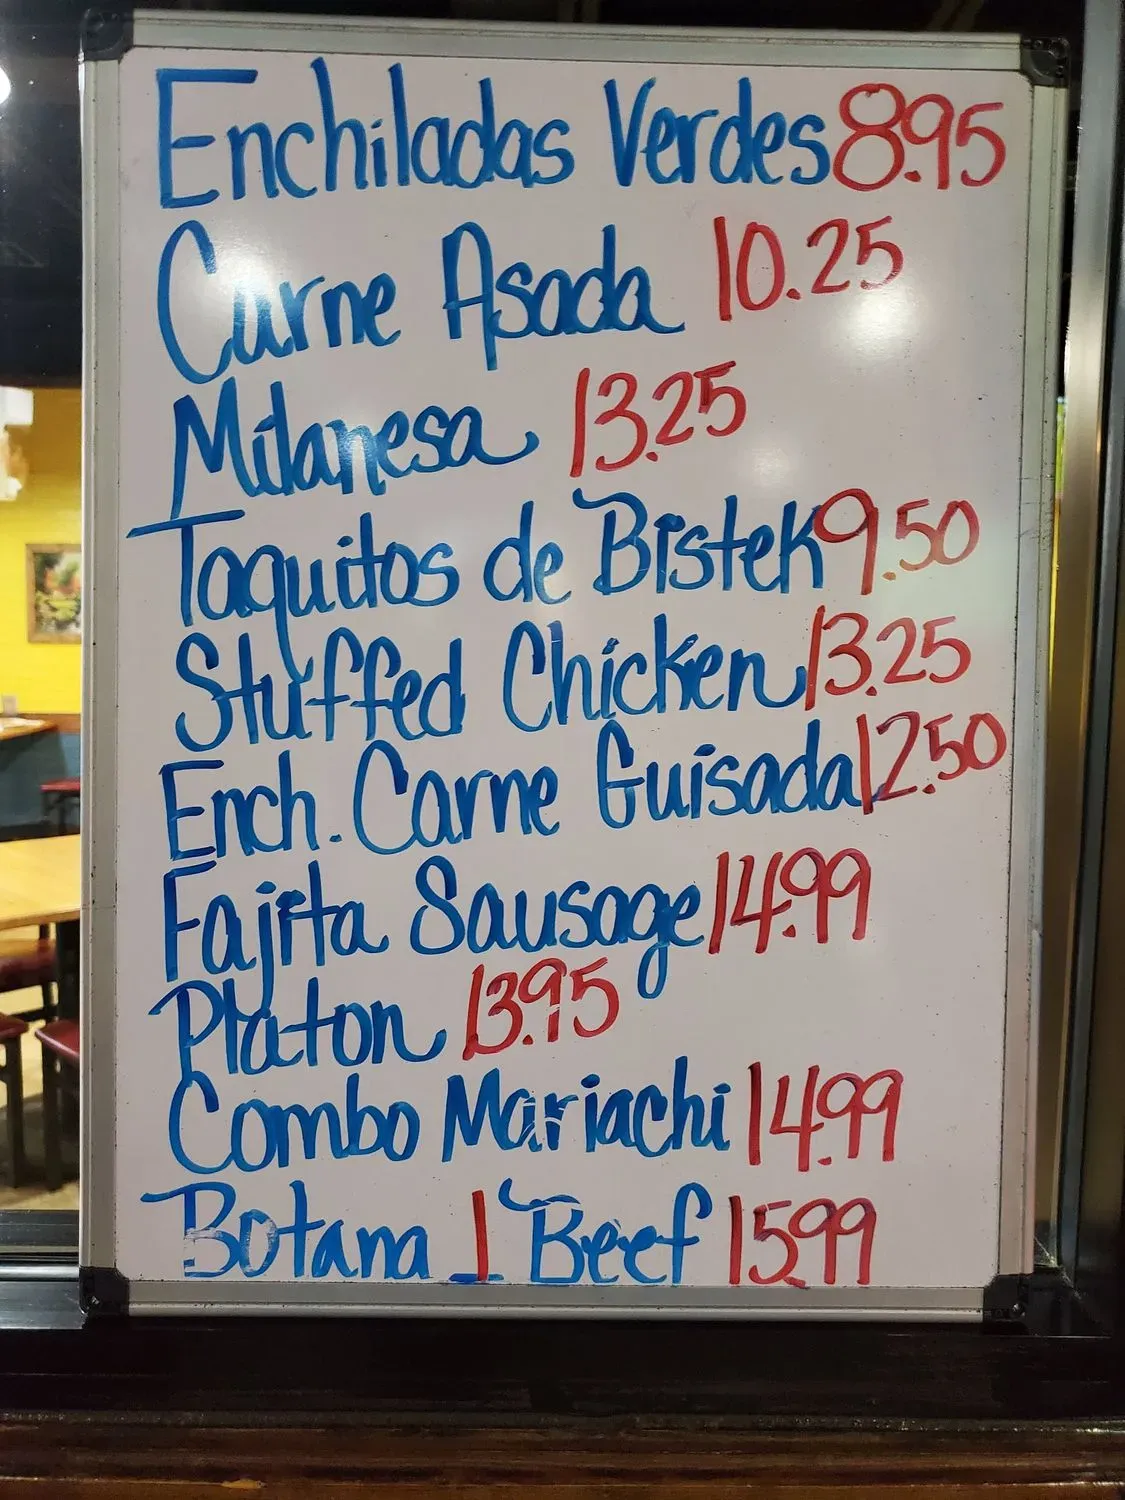 Enchiladas Verdes 8.95
Carne Asada 10.25
Milanesa 13.25
Taquitos de Bistek 9.50
Stuffed Chicken 13.25
Ench. Carne Guisada 12.50
Fajita Sausage 14.99
Platon 13.95
Combo Mariachi 14.99
Botana 1 Beef 15.99